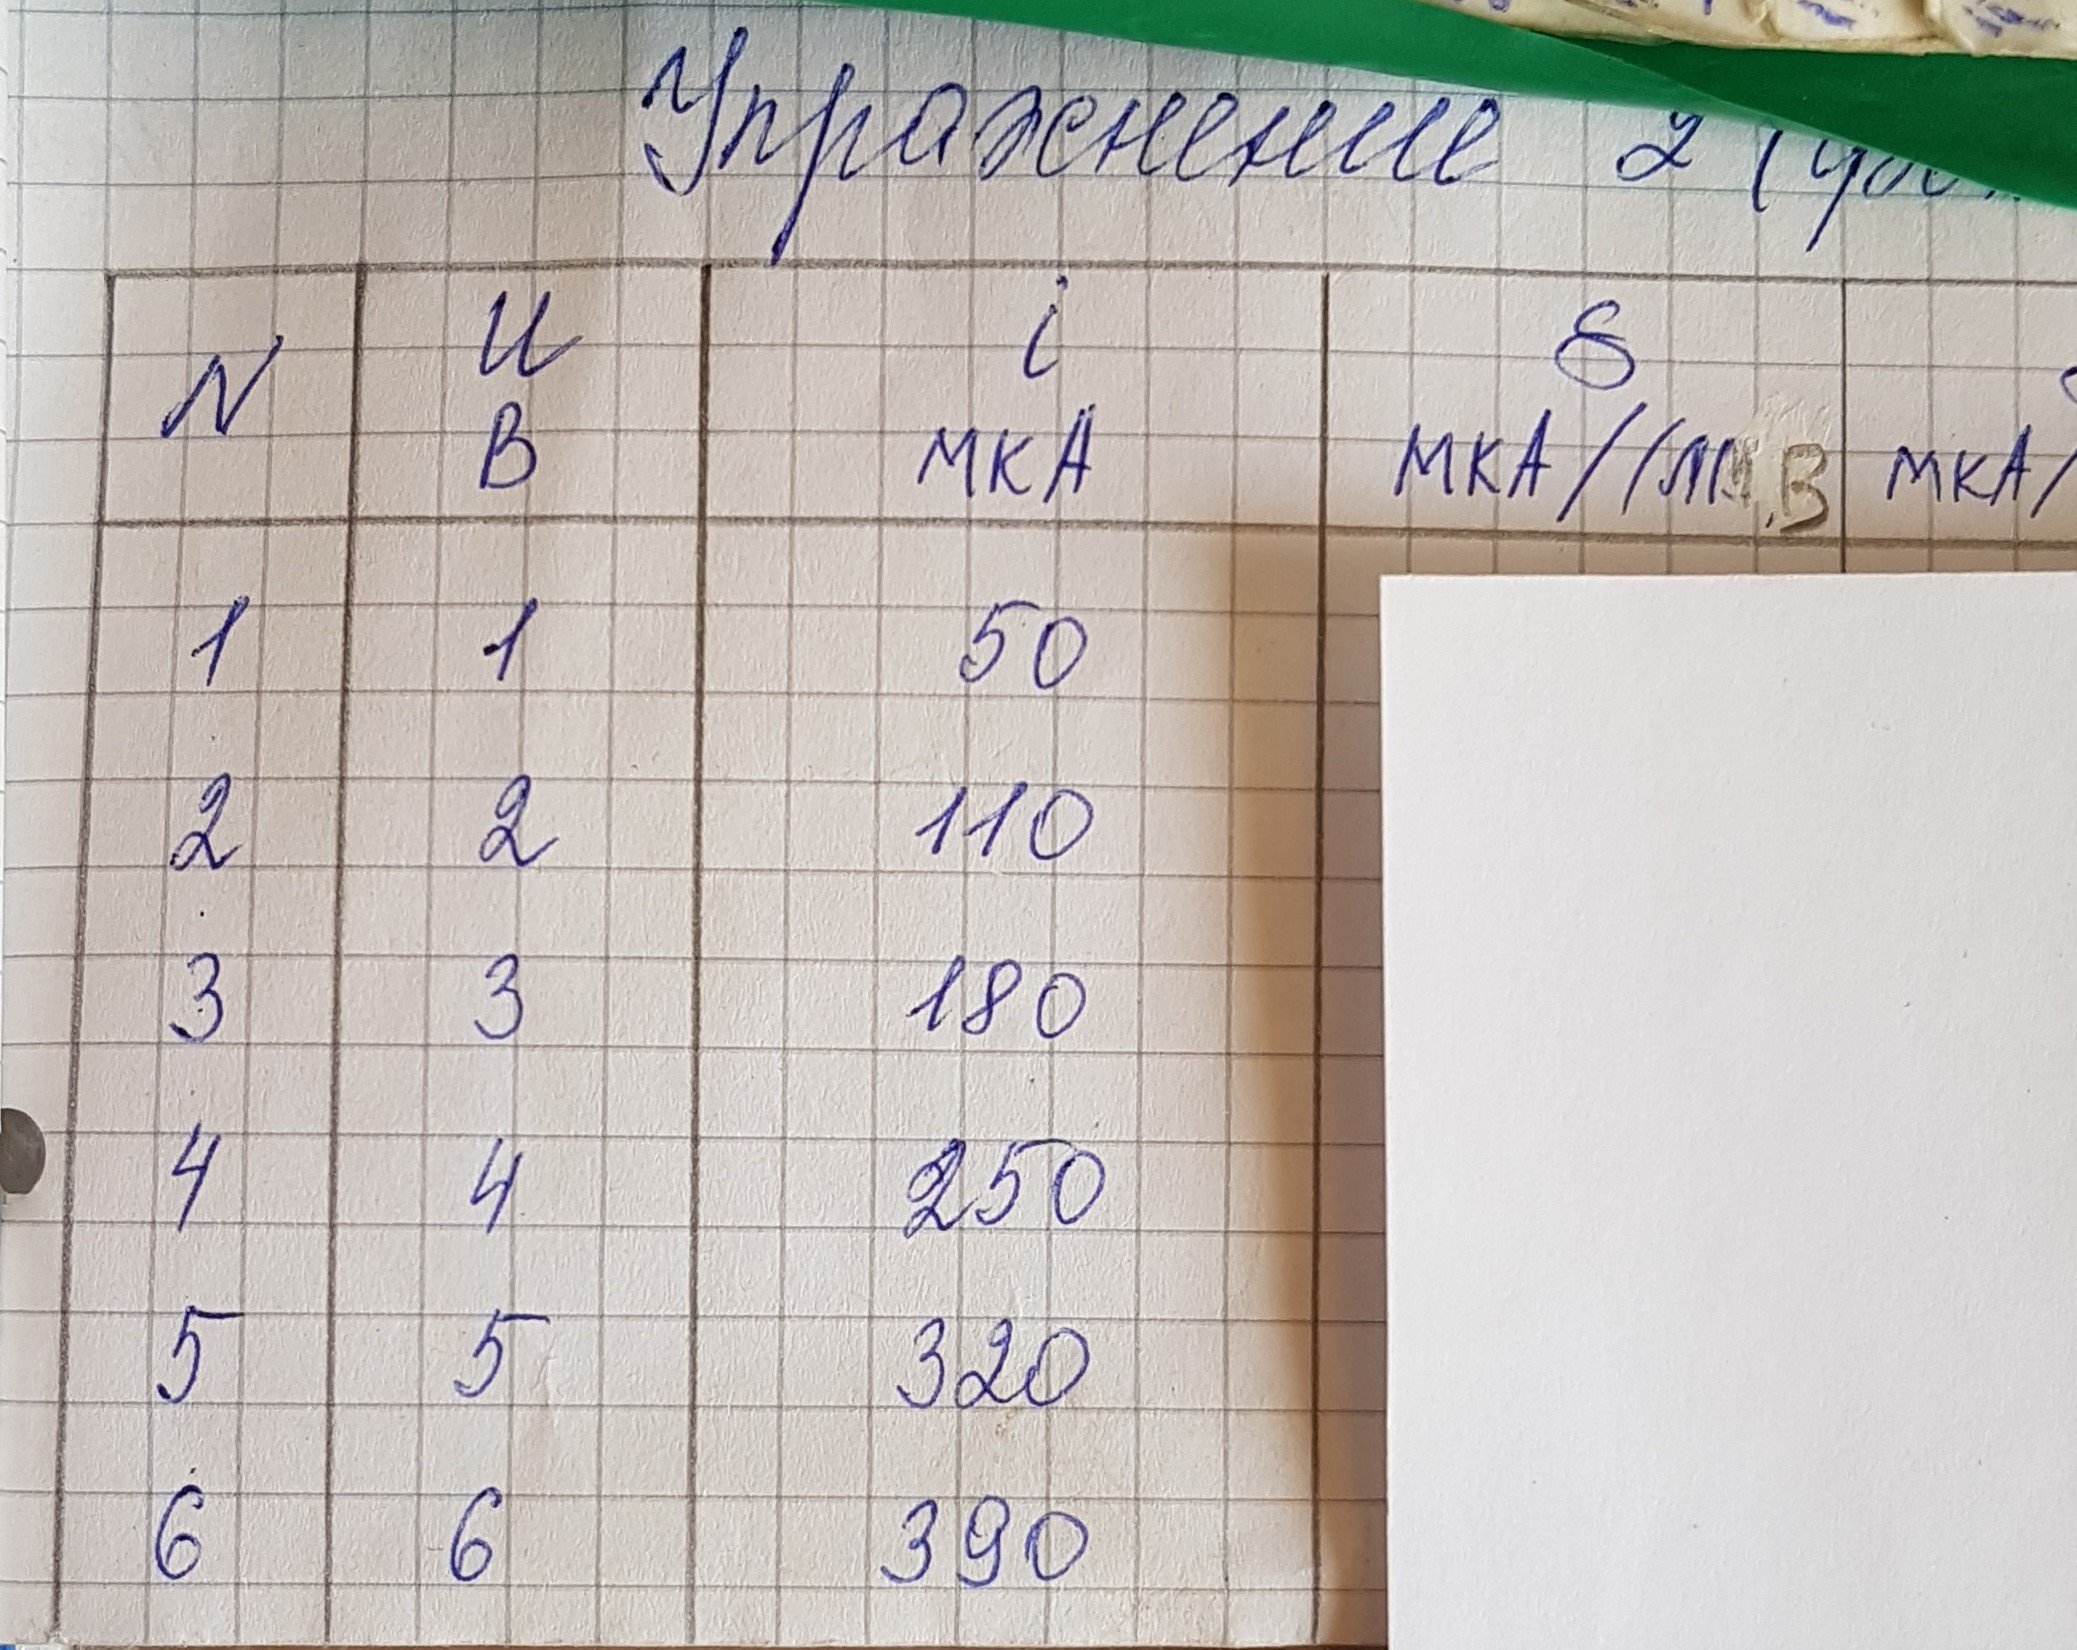 Упражнение 2
N U i S
В мкА мкА/(лм·В мкА/
1 1 50
2 2 110
3 3 180
4 4 250
5 5 320
6 6 390